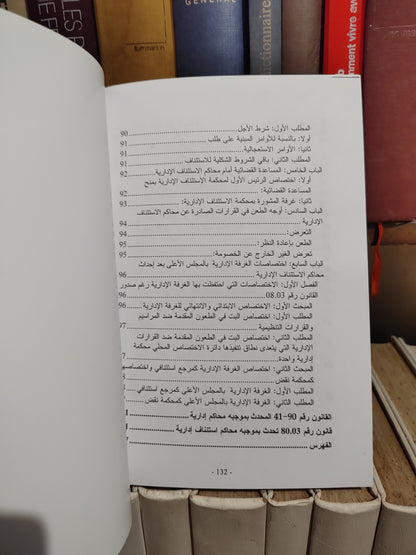 LES PA
DE FR
Flammarion
GENERAL
Dictionnaire
omment vivre avec
المطلب الأول: شرط الأجل ............ 90
أولا: بالنسبة للأوامر المبنية على طلب ............ 91
ثانيا: الأوامر الاستعجالية ............ 91
المطلب الثاني: باقي الشروط الشكلية للاستئناف ............ 91
الباب الخامس: المساعدة القضائية أمام محاكم الاستئناف الإدارية ............ 92
أولا: اختصاص الرئيس الأول لمحكمة الاستئناف الإدارية بمنح
المساعدة القضائية: ............ 92
ثانيا: غرفة المشورة بمحكمة الاستئناف الإدارية: ............ 92
الباب السادس: أوجه الطعن في القرارات الصادرة عن محاكم الاستئناف
الإدارية ............ 94
التعرض: ............ 94
الطعن بإعادة النظر: ............ 95
تعرض الغير الخارج عن الخصومة: ............ 95
الباب السابع: اختصاصات الغرفة الإدارية بالمجلس الأعلى بعد إحداث
محاكم الاستئناف الإدارية ............ 96
الفصل الأول: الاختصاصات التي احتفظت بها الغرفة الإدارية رغم صدور
القانون رقم 08.03 ............ 96
المبحث الأول: الاختصاص الابتدائي والانتهائي للغرفة الإدارية ............ 96
المطلب الأول: اختصاص البت في الطعون المقدمة ضد المراسيم
والقرارات التنظيمية ............ 97
المطلب الثاني: اختصاص البت في الطعون المقدمة ضد القرارات
الإدارية التي يتعدى نطاق تنفيذها دائرة الاختصاص المحلي لمحكمة
إدارية واحدة. ............ 7
المبحث الثاني: اختصاص الغرفة الإدارية كمرجع استئنافي واختصاصها
كمحكمة نقض ............
المطلب الأول: الغرفة الإدارية بالمجلس الأعلى كمرجع استئنافي
المطلب الثاني: الغرفة الإدارية بالمجلس الأعلى كمحكمة نقض ............
القانون رقم 90-41 المحدث بموجبه محاكم إدارية ............
قانون رقم 80.03 تحدث بموجبه محاكم استئناف إدارية ............
الفهرس ............
- 132 -